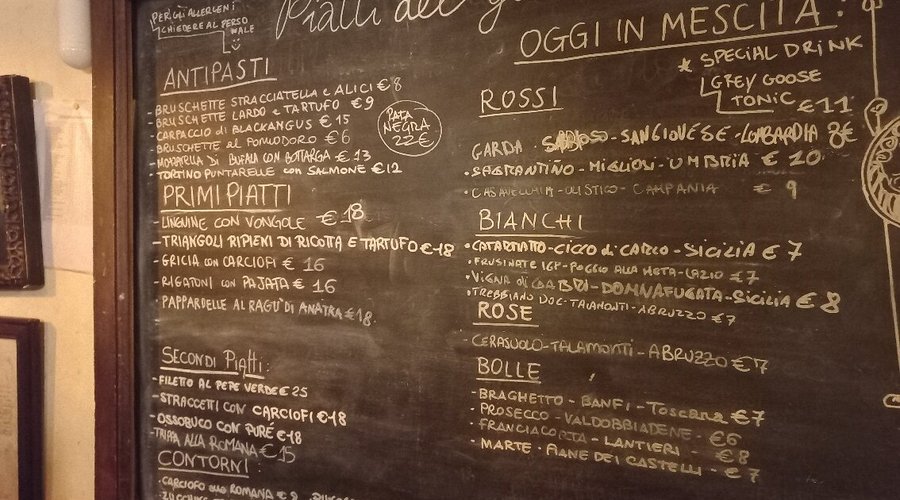 PER GLI ALLERGENI
CHIEDERE AL PERSO
NALE
Piatti del
ANTIPASTI
- BRUSCHETTE STRACCIATELLA e ALICI € 8
- BRUSCHETTE LARDO e TARTUFO € 9
- CARPACCIO di BLACKANGUS € 15
- BRUSCHETTE al POMODORO € 6
- MOZZARELLA DI BUFALA CON BOTTARGA € 13
- TORTINO PUNTARELLE con SALMONE € 12
PATA
NEGRA
22€
PRIMI PIATTI
- LINGUINE CON VONGOLE € 18
- TRIANGOLI RIPIENI DI RICOTTA E TARTUFO € 18
- GRICIA con CARCIOFI € 16
- RIGATONI con PAJATA € 16
- PAPPARDELLE AL RAGU' DI ANATRA € 18
SECONDI PIATTI:
- FILETTO AL PEPE VERDE € 25
- STRACCETTI CON CARCIOFI € 18
- OSSOBUCO CON PURÉ € 18
- TRIPPA ALLA ROMANA € 15
CONTORNI:
- CARCIOFO alla ROMANA € 9
OGGI IN MESCITA:
* SPECIAL DRINK
GREY GOOSE
TONIC € 11
ROSSI
GARDA - SANGIOVESE - LOMBARDIA 8€
- SAGRANTINO - MIGLIOLI - UMBRIA € 10
- CASAVECCHIA - OLISTICO - CAMPANIA € 9
BIANCHI
- CATARRATTO - CICCO di CARLO - SICILIA € 7
- FRUSINATE IGP - POGGIO ALLA META - LAZIO € 7
- VIGNA di GABRI - DONNAFUGATA - SICILIA € 8
- TREBBIANO DOC - TALAMONTI - ABRUZZO € 7
ROSE
- CERASUOLO - TALAMONTI - ABRUZZO € 7
BOLLE
- BRAGHETTO - BANFI - Toscana € 7
- PROSECCO - VALDOBBIADENE - € 6
- FRANCIACORTA - LANTIERI - € 8
- MARTE - PIANE DEI CASTELLI - € 7